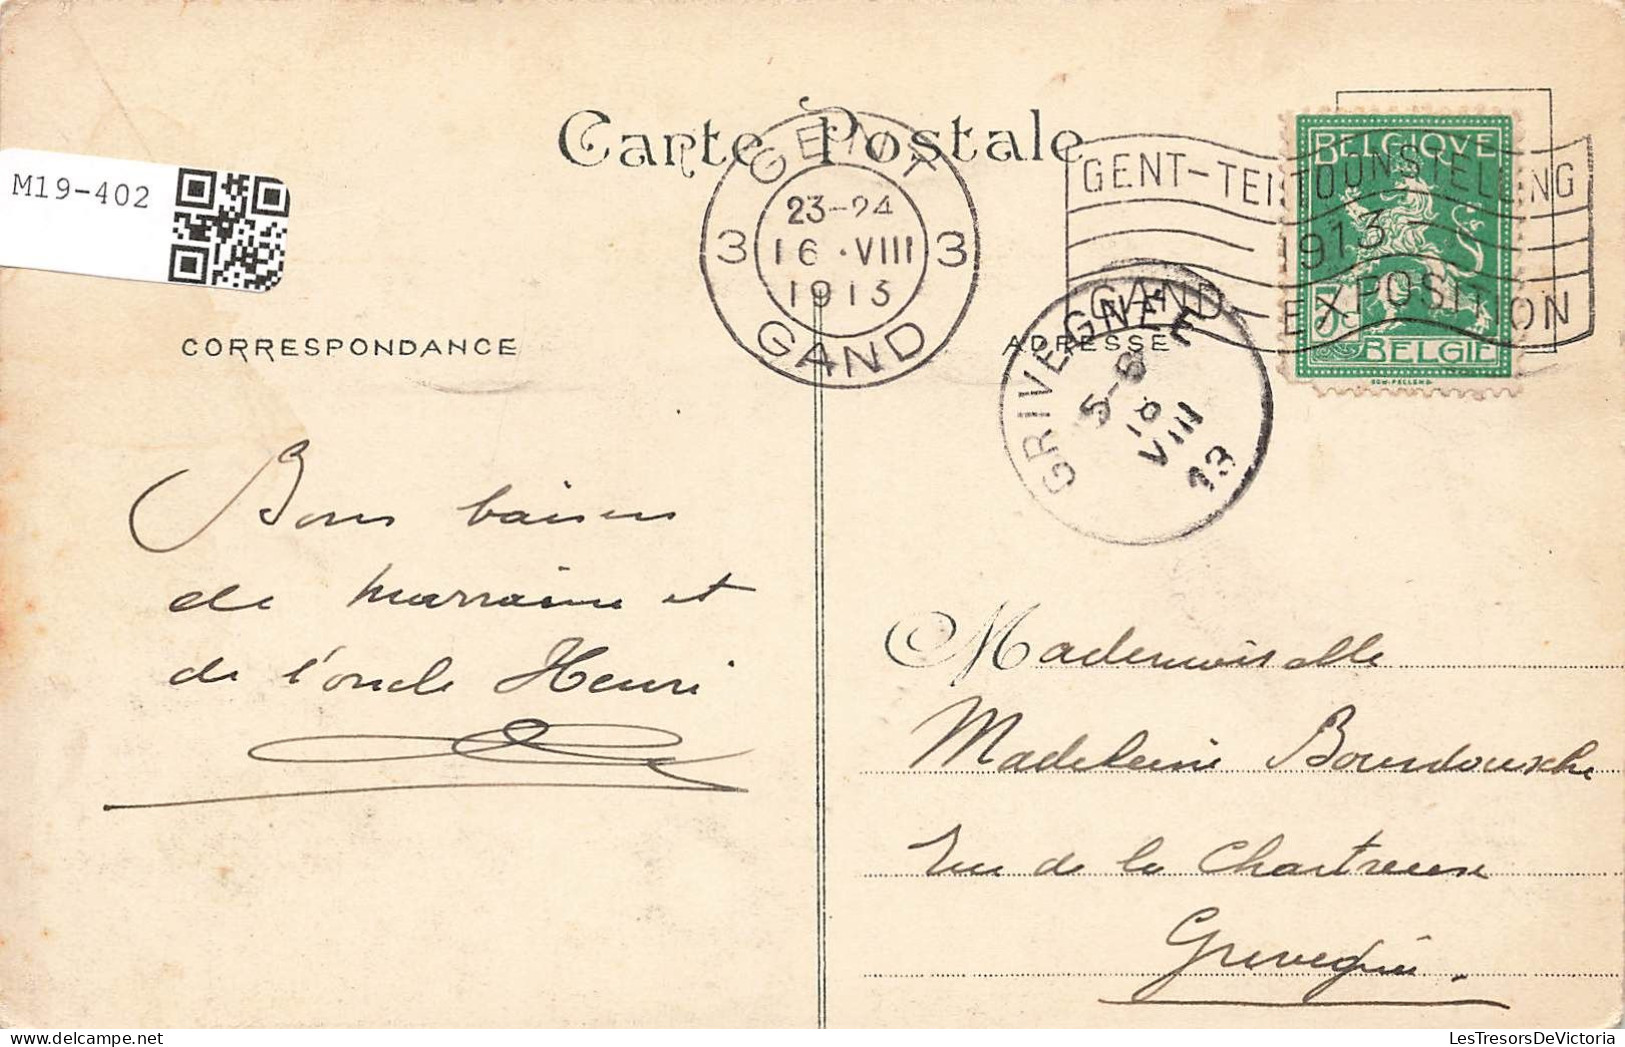 M19-402
Carte Postale
GENT
3 23-24 3
16 · VIII
1913
GAND
GENT-TENTOONSTELLING
1913
GAND EXPOSITION
BELGIQUE
5
BELGIE
GRIVEGNEE
5-6
18
VIII
13
CORRESPONDANCE
ADRESSE
Bons baisers
de marraine et
de l'oncle Henri
Mademoiselle
Madeleine Bourdouxhe
Rue de la Chartreuse
Grivegnée.
LesTresorsDeVictoria